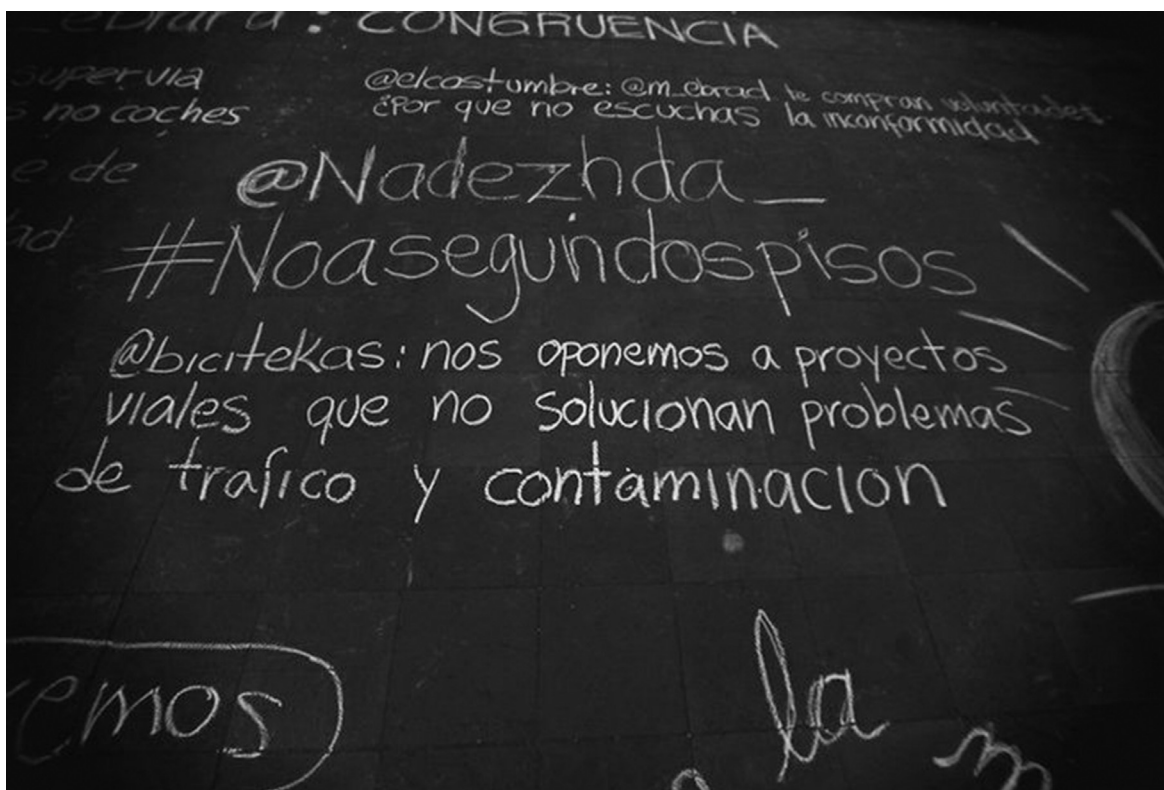 : CONGRUENCIA
supervia
no coches
@elcostumbre: @m_ebrad te compran voluntades.
¿Por que no escuchas la inconformidad
e de
@Nadezhda_
ad
#Noasegundospisos
@bicitekas: nos oponemos a proyectos
viales que no solucionan problemas
de trafico y contaminacion
emos
la
m